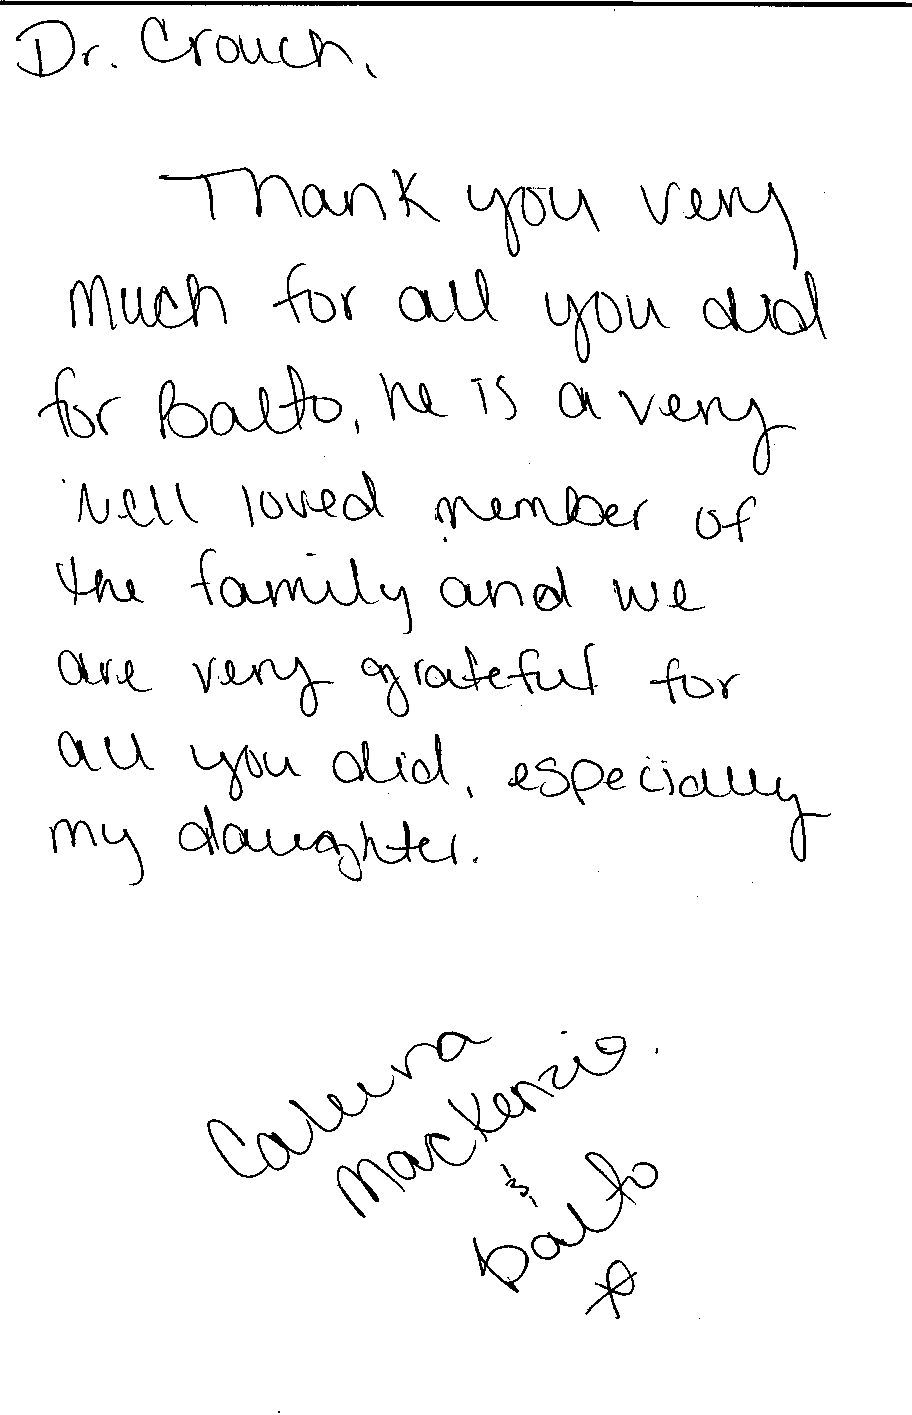 Dr. Crouch,
Thank you very
much for all you did
for Balto, he is a very
well loved member of
the family and we
are very grateful for
all you did, especially
my daughter.
Mackenzie
&
Balto